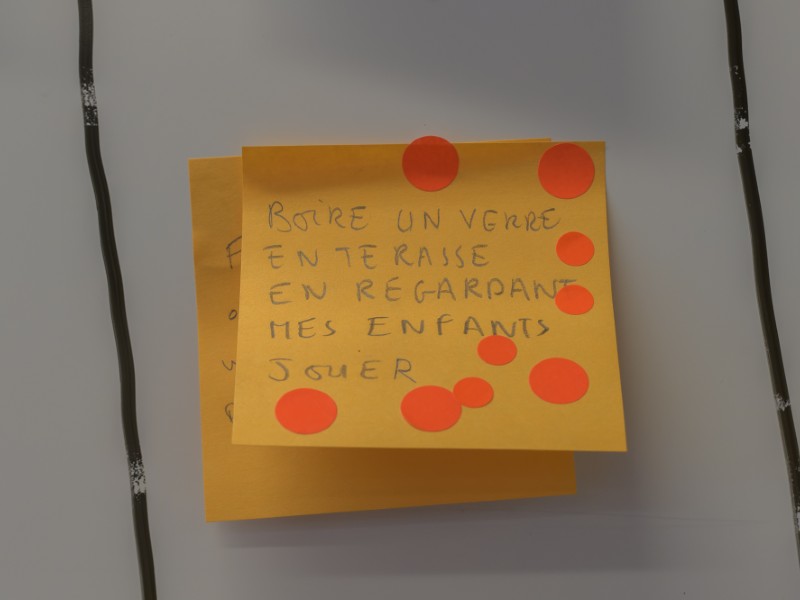 BOIRE UN VERRE
EN TERASSE
EN REGARDANT
MES ENFANTS
JOUER